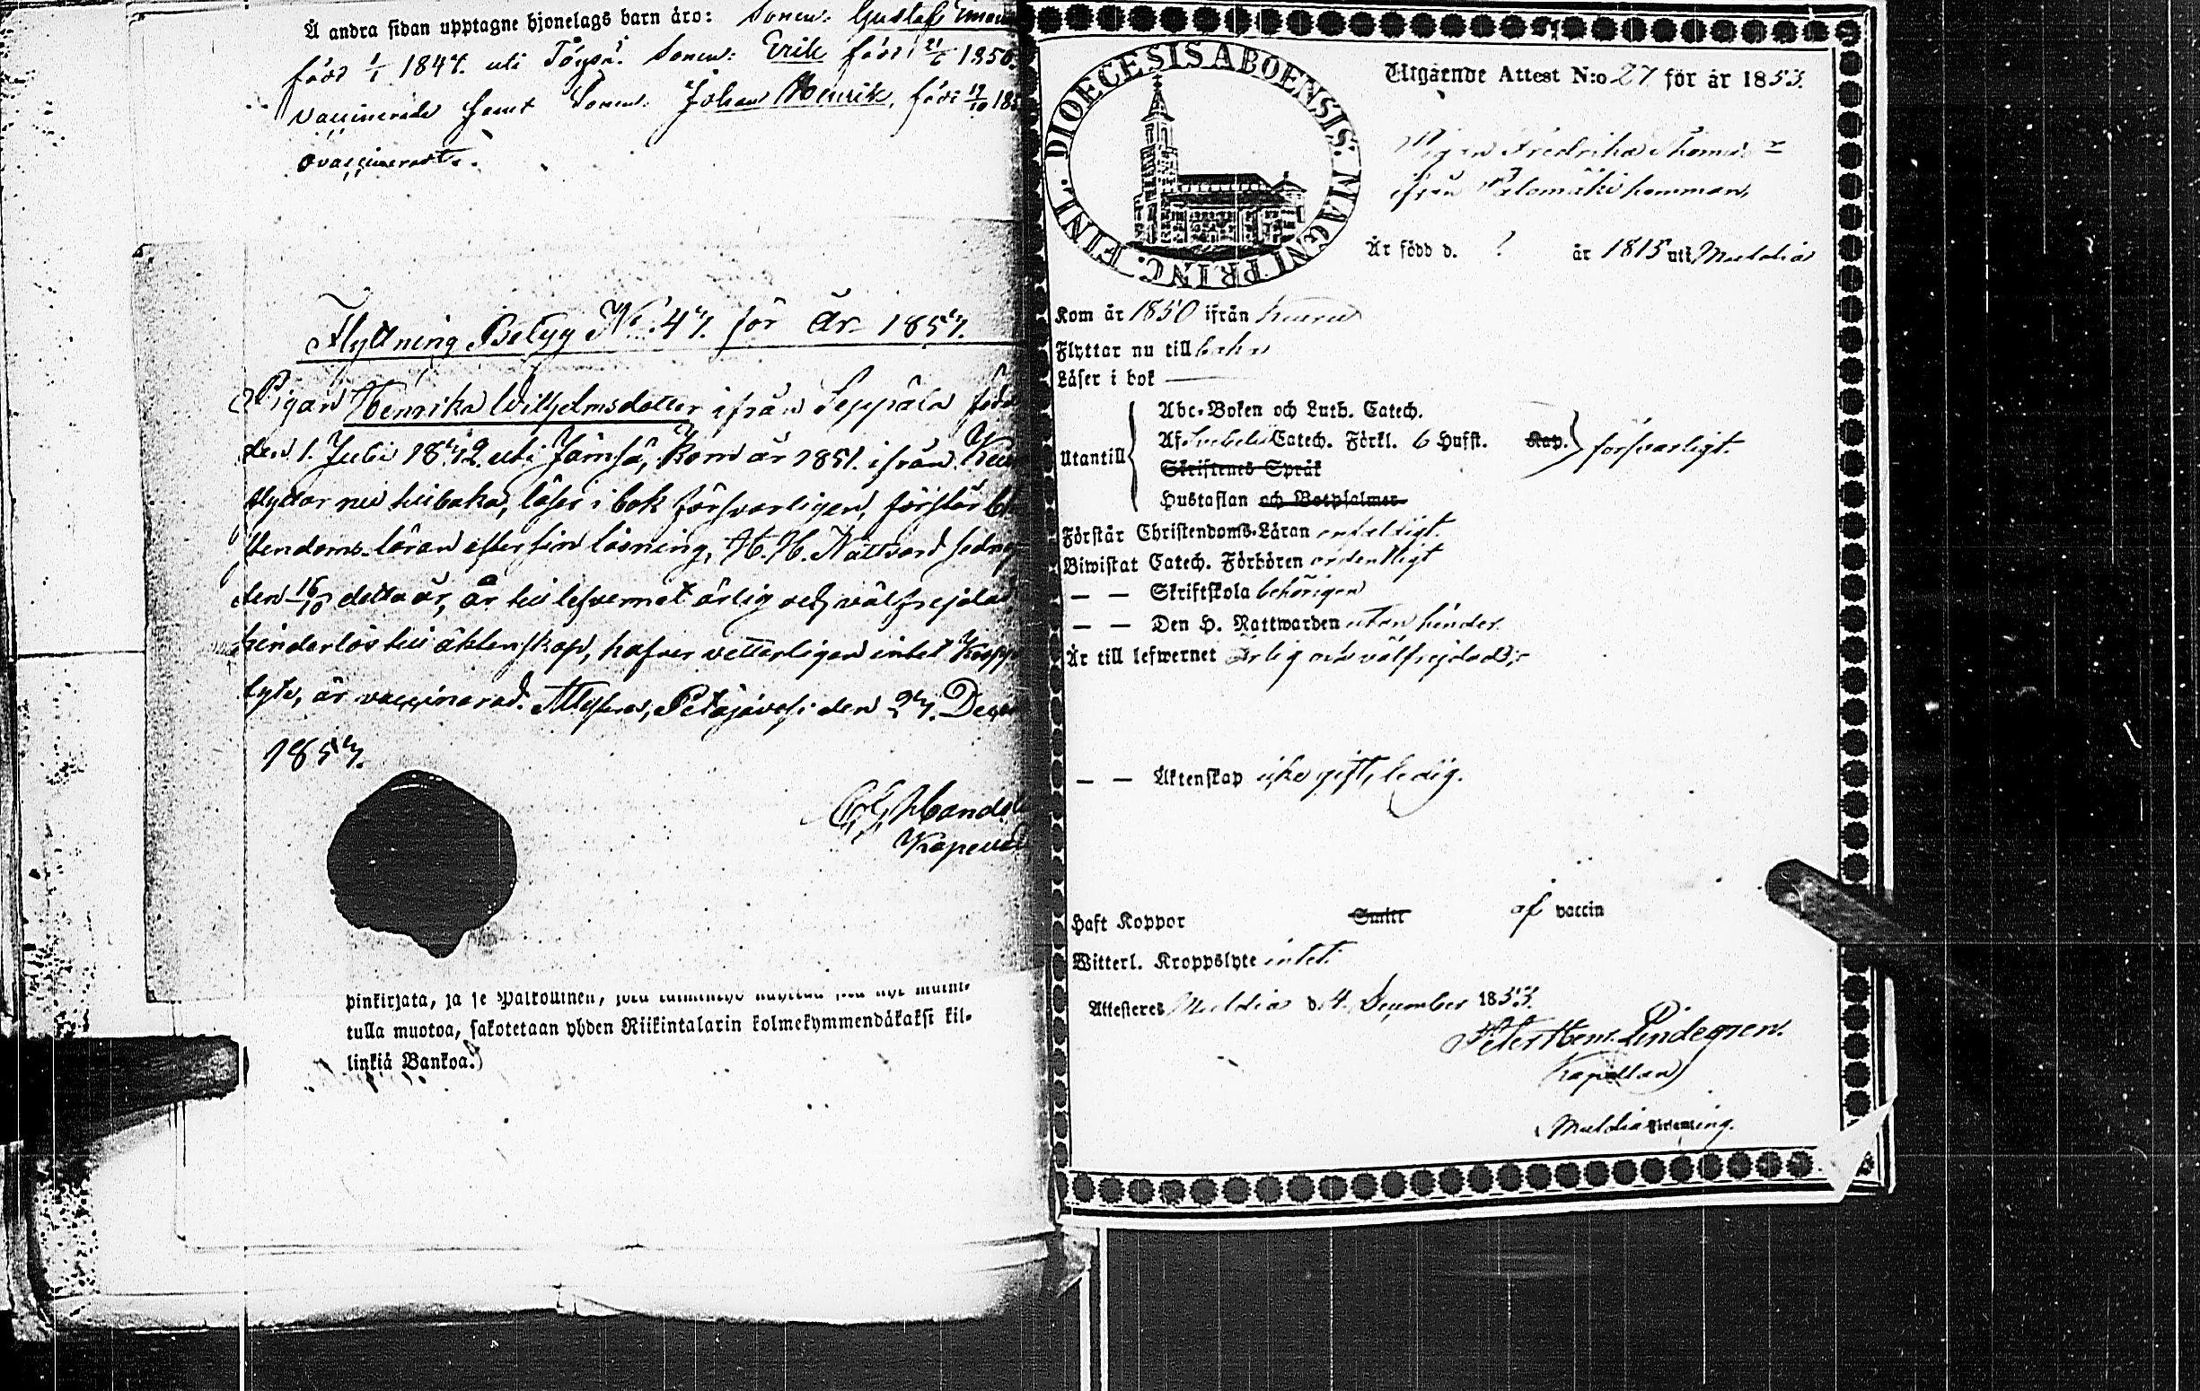 Å andra sidan upptagne hjonelags barn äro: Sonen: Gustaf
född 1/1 1847. uti Sonen: Erik född 1850.
vaccinerade samt Sonen: Johan Henrik, född 19/10 18
ovaccinerad.
Flyttning Betyg No. 47. för År 1857.
Pigan Henrika Wilhelmsdotter ifrån Seppälä född
den 1. Julii 1842. uti Jämsä, kom år 1851. ifrån
flyttar nu tillbaka, läser i bok försvarligen, förstår
stendoms-läran efter sin läsning, H. H. Nattvard
den 16/10 detta år, är till lefvernet ärlig och välfrejdad,
hinderlös till äktenskap, hafver vetterligen intet Kropp
lyte, är vaccinerad. Attesteras, Petäjävesi den 27. Decem
1857.
pinkirjata, ja se
tulla muotoa, sakotetaan yhden Riikintalarin kolmekymmendäkaksi kil-
linkiä Bankoa.)
DIOECESIS ABOENSIS. MAGNI PRINC. FINL.
Utgående Attest N:o 27 för år 1853.
Pigan Fredrika
ifrån Palomäki hemman,
Är född d. ? år 1815 uti Multia
Kom år 1850 ifrån Keuru
Flyttar nu tillbaka
Läser i bok
Utantill
Abc-Boken och Luth. Catech.
Af Svebelii Catech. Förkl. 6 Hufst. Kap. försvarligt.
Skriftenes Språk
Hustaflan och Botpsalmer
Förstår Christendoms-Läran enfaldigt.
Biwistat Catech. Förhören ordentligt
— — Skriftskola behörigen
— — Den H. Nattwarden utan hinder.
Är till lefwernet ärlig och välfrejdad;
— — Äktenskap icke gift, ledig.
Haft Koppor Smitt af vaccin
Witterl. Kroppslyte intet.
Attesteres Multia d. 4. December 1853.
Peter Henr. Lindegren.
Kapellan
Multia